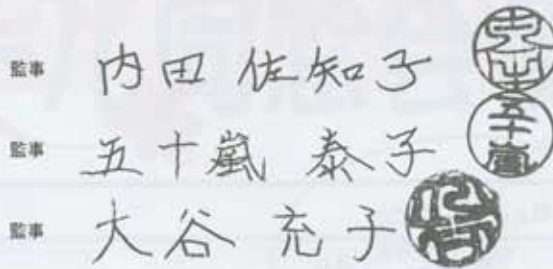 監事 内田 佐知子
監事 五十嵐 泰子 五十嵐
監事 大谷 充子